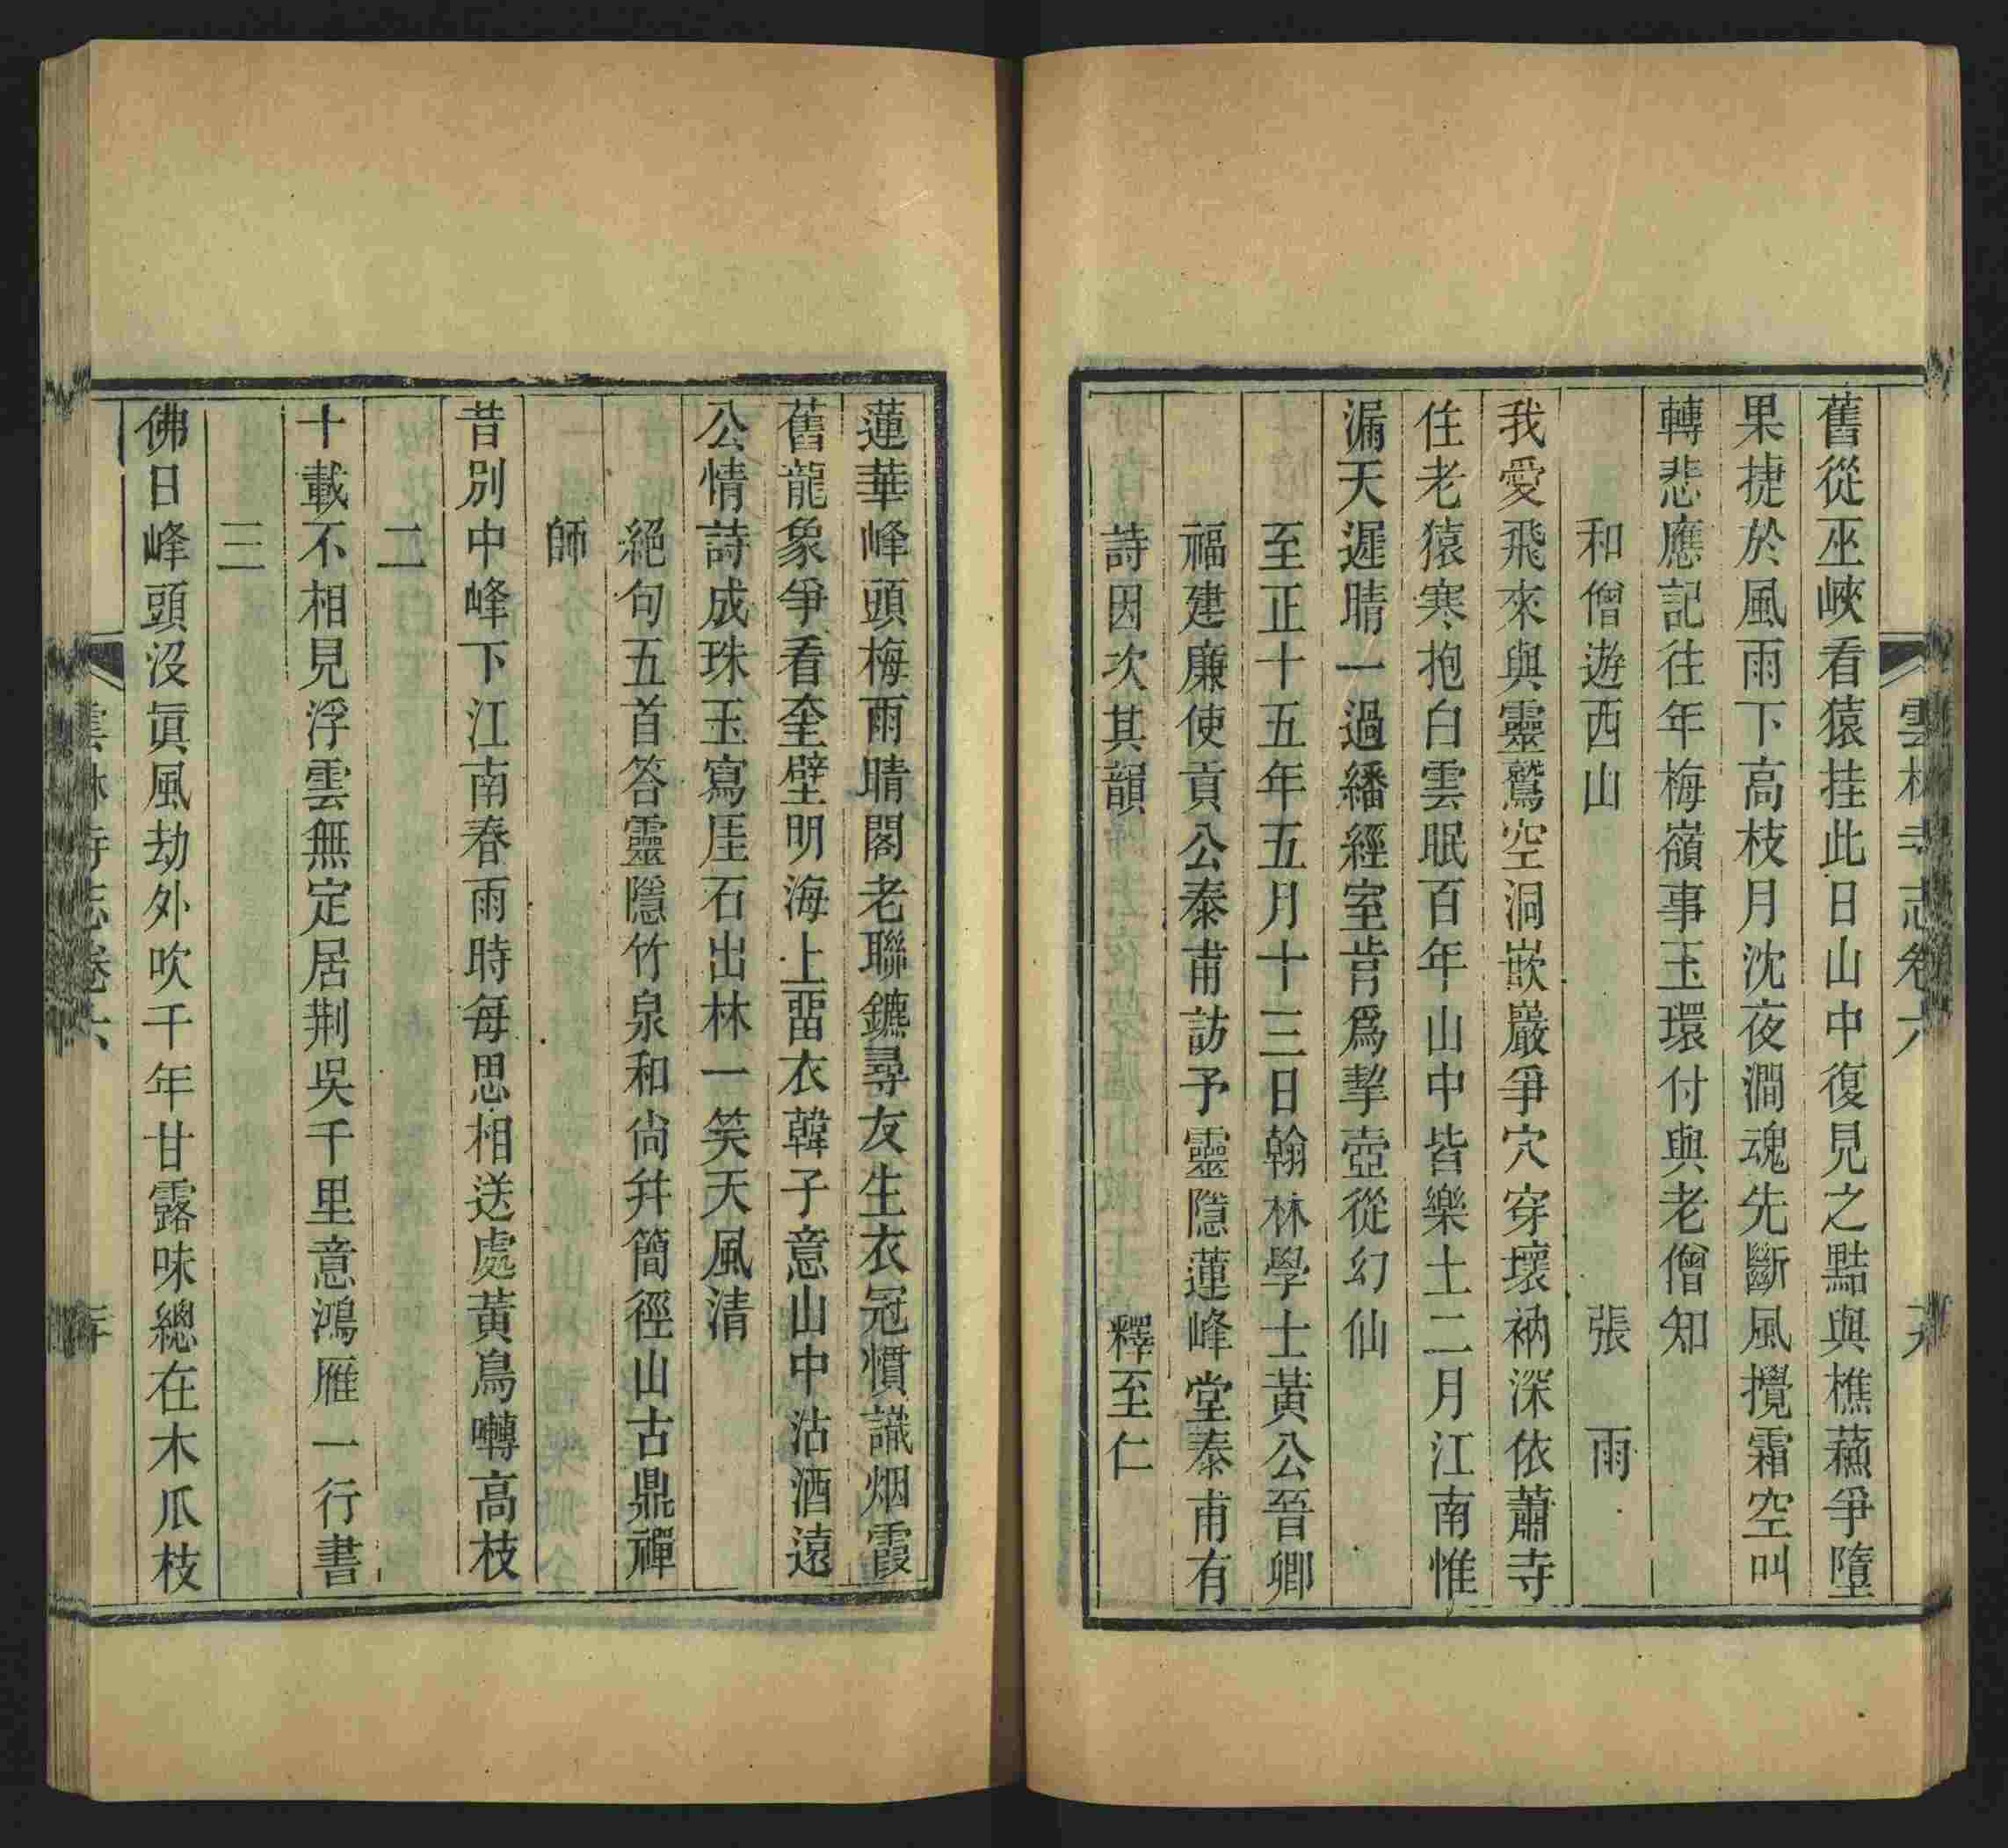 雲林寺志卷六
舊從巫峽看猿挂此日山中復見之黠與樵蘇爭墮
果捷於風雨下高枝月沈夜澗魂先斷風攪霜空叫
轉悲應記往年梅嶺事玉環付與老僧知
和僧遊西山 張雨
我愛飛來與靈鷲空洞嵌巖爭穴穿壞衲深依蕭寺
住老猿寒抱白雲眠百年山中皆樂土二月江南惟
漏天遲晴一過繙經室肯爲挈壺從幻仙
至正十五年五月十三日翰林學士黃公晉卿
福建廉使貢公泰甫訪予靈隱蓮峰堂泰甫有
詩因次其韻 釋至仁
蓮華峰頭梅雨晴閣老聯鑣尋友生衣冠慣識烟霞
舊龍象爭看奎壁明海上畱衣韓子意山中沽酒遠
公情詩成珠玉寫厓石出林一笑天風清
絕句五首答靈隱竹泉和尙幷簡徑山古鼎禪
師
昔別中峰下江南春雨時每思相送處黃鳥囀高枝
二
十載不相見浮雲無定居荆吳千里意鴻雁一行書
三
佛日峰頭沒眞風劫外吹千年甘露味總在木瓜枝
雲林寺志卷六